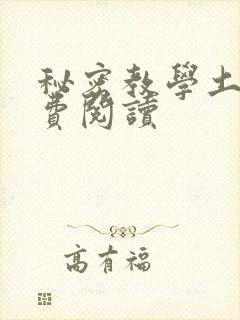 秘密教學土
費閱讀
高有福